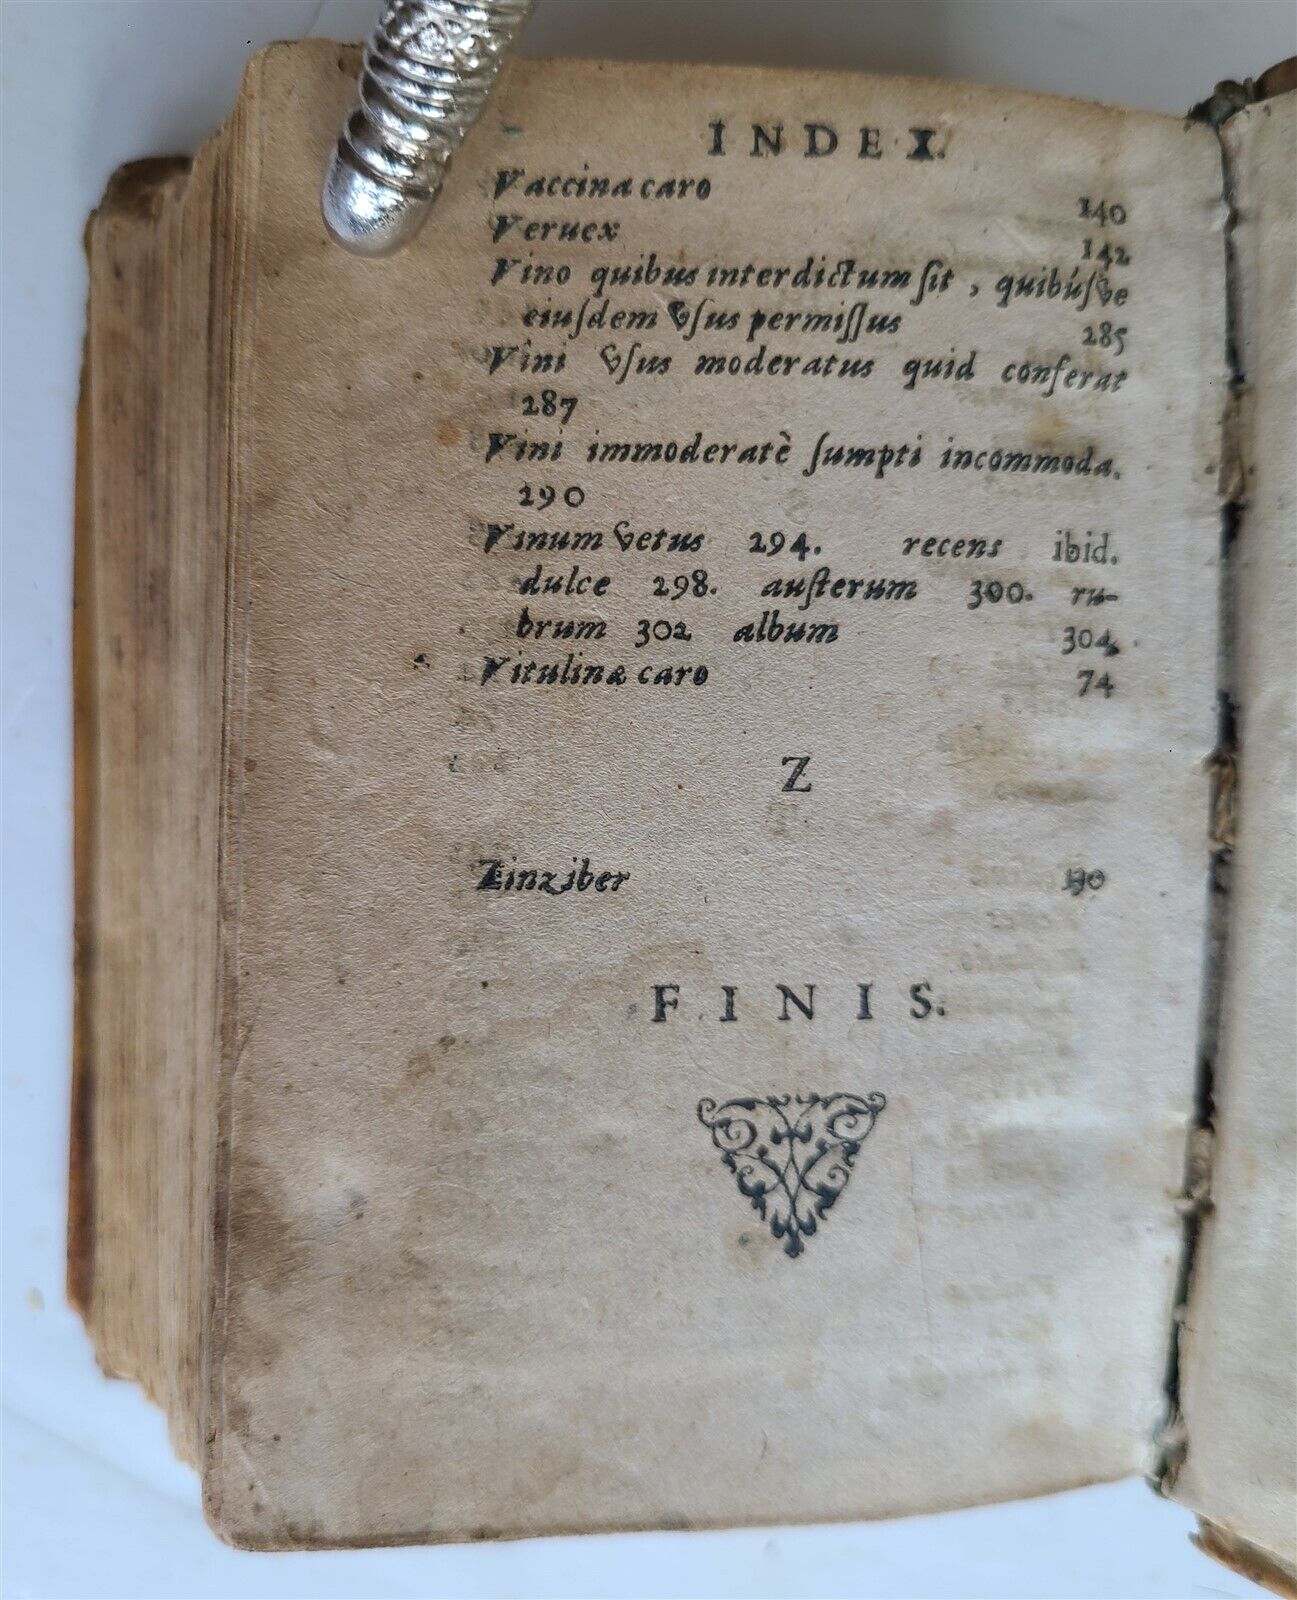 INDEX.
Vaccina caro 140
Veruex 142
Vino quibus interdictum ſit, quibúſve
eiuſdem vſus permiſſus 285
Vini vſus moderatus quid conferat
287
Vini immoderatè ſumpti incommoda.
290
Vinum vetus 294. recens ibid.
dulce 298. auſterum 300. ru-
brum 302 album 304.
Vitulina caro 74
Z
Zinziber
FINIS.